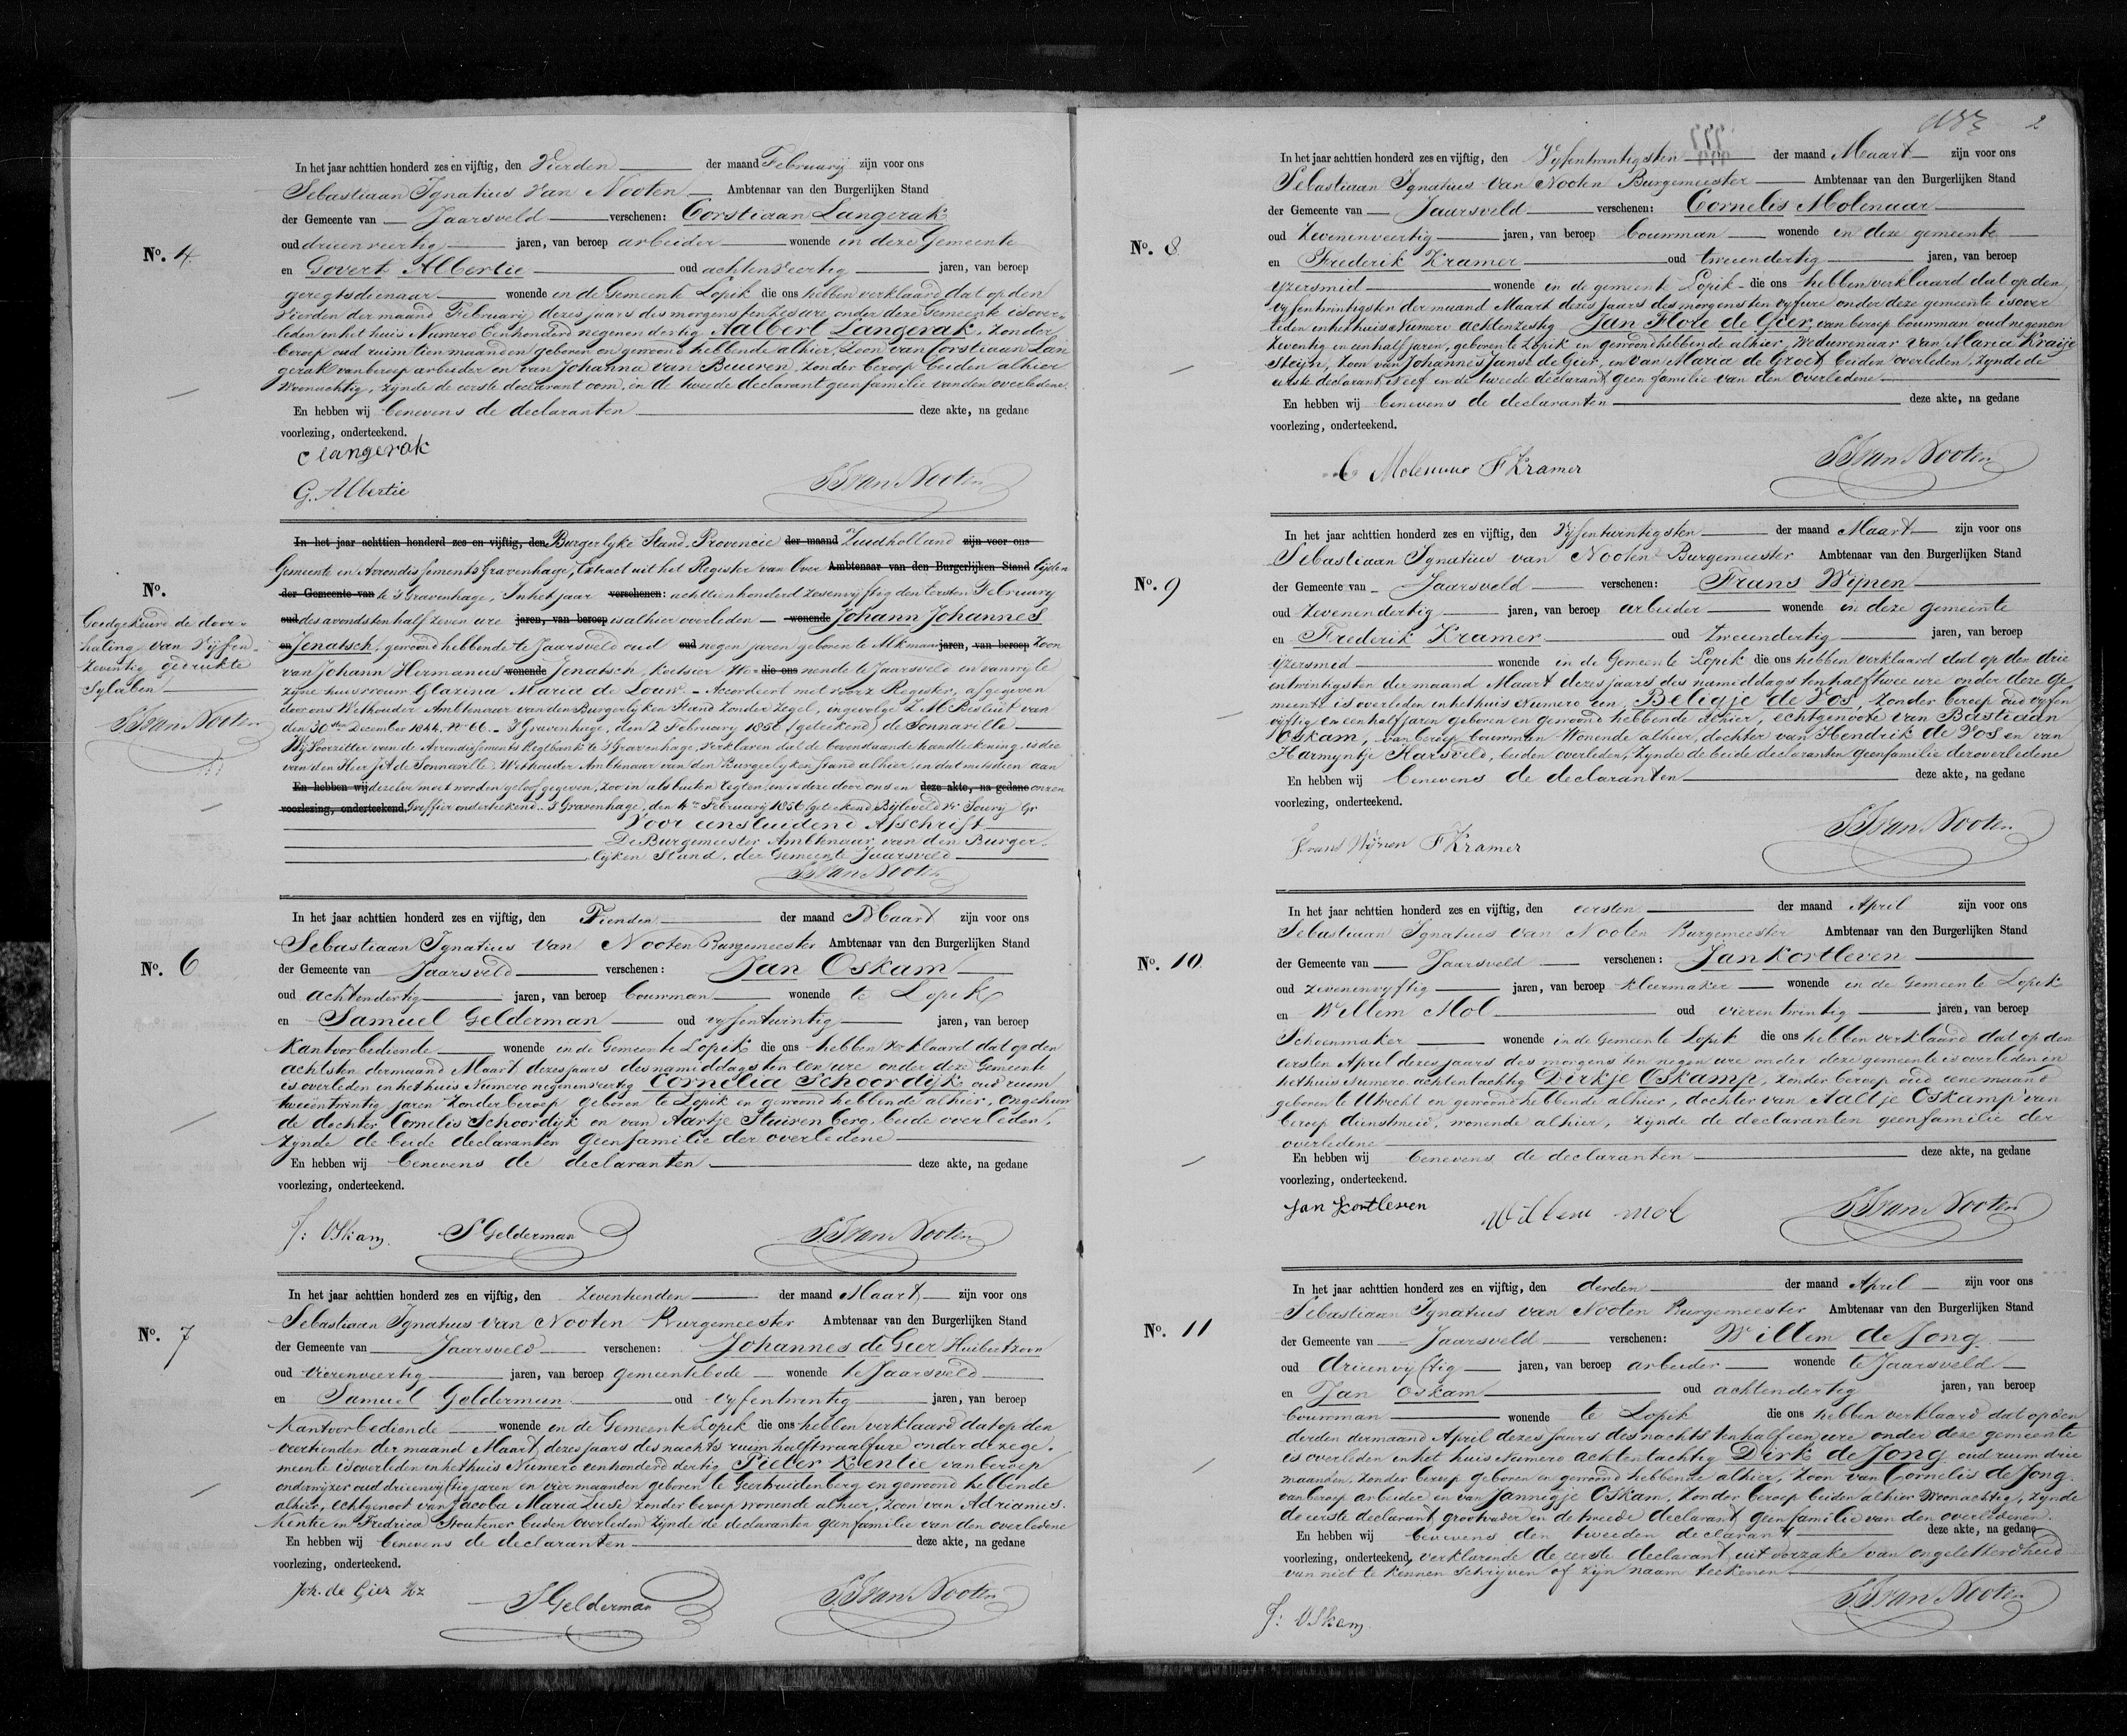 In het jaar achttien honderd zes en vijftig, den Vierden der maand Februarij zijn voor ons
Sebastiaan Ignatius Van Nooten Ambtenaar van den Burgerlijken Stand
der Gemeente van Jaarsveld verschenen: Corstiaan Langerak
oud drieenveertig jaren, van beroep arbeider wonende in deze Gemeente
No. 4
en Govert Albertie oud achtenveertig jaren, van beroep
geregtsdienaar wonende in de Gemeente Lopik die ons hebben verklaard dat op den
Vierden der maand Februarij dezes jaars des morgens ten zes ure onder deze Gemeente is over-
leden in het huis Numero Eenhonderd negenendertig Aalbert Langerak, zonder
beroep oud ruim tien maanden geboren en gewoond hebbende alhier, Zoon van Corstiaan Lan
gerak van beroep arbeider en van Johanna van Buuren, zonder beroep beiden alhier
Woonachtig, zynde de eerste declarant oom, in de tweede declarant geen familie van den overledene.
En hebben wij benevens de declaranten deze akte, na gedane
voorlezing, onderteekend.
C langerak
G. Albertie
SIvan Nooten
In het jaar achttien honderd zes en vijftig, den Burgerlyke Stand Provincie der maand Zuidholland zijn voor ons
Gemeente en Arrondissements Gravenhage, Extract uit het Register van Over Ambtenaar van den Burgerlijken Stand lijden
No.
der Gemeente van te 's Gravenhage, In het jaar verschenen: achttienhonderd zesenvyftig den Eersten February
Goedgekeurd de door-
haling van Vyfen-
zeventig gedrukte
Sylaben
SIvan Nooten
oud des avonds ten half zeven ure jaren, van beroep is alhier overleden wonende Johann Johannes
en Jenatsch, gewoond hebbende te Jaarsveld oud oud negen jaren geboren te Alkmaar jaren, van beroep Zoon
van Johann Hermanus wonende Jenatsch, koetsier Wo- die ons nende te Jaarsveld en van wyle
zyne huisvrouw Glazina Maria de Louw. - Accordeert met voorz Register, afgegeven
door ons Wethouder Ambtenaar van den Burgerlyken Stand zonder zegel, ingevolge Z.M. Besluit van
den 30sten December 1844. No 66. - 's Gravenhage, den 2 February 1856 (geteekend) de Sonnaville
Wy Voorzitter van de Arrondissements Regtbank te 's Gravenhage, Verklaren dat de bovenstaande handteekening is die
van den Heer de Sonnaville Wethouder Ambtenaar van den Burgerlyken Stand alhier, en dat mitsdien aan
En hebben wij dezelve moet worden geloof gegeven, zoo in als buiten Regten, en is deze door ons en deze akte, na gedane onzen
voorlezing, onderteekend. Griffier onderteekend. 's Gravenhage, den 4en Februarij 1856 (geteekend) Gr
Voor eensluidend Afschrift
De Burgemeester Ambtenaar van den Burger-
lijken Stand, der Gemeente Jaarsveld
SIvan Nooten
In het jaar achttien honderd zes en vijftig, den Tienden der maand Maart zijn voor ons
Sebastiaan Ignatius Van Nooten Burgemeester Ambtenaar van den Burgerlijken Stand
No. 6
der Gemeente van Jaarsveld verschenen: Jan Oskam
oud achtendertig jaren, van beroep bouwman wonende te Lopik
en Samuel Gelderman oud vyfentwintig jaren, van beroep
Kantoorbediende wonende in de Gemeente Lopik die ons hebben verklaard dat op den
achtsten der maand Maart dezes jaars des namiddags ten een ure onder deze Gemeente
is overleden in het huis Numero negenenveertig Cornelia Schoordijk oud ruim
tweeentwintig jaren zonder beroep geboren te Lopik en gewoond hebbende alhier, Ongehuw
de dochter Cornelis Schoordijk en van Aartje Stuivenberg, beide overleden,
zynde de beide declaranten geen familie der overledene
En hebben wij benevens de declaranten deze akte, na gedane
voorlezing, onderteekend.
J: OSkam. SGelderman SIvan Nooten
In het jaar achttien honderd zes en vijftig, den Zeventienden der maand Maart zijn voor ons
Sebastiaan Ignatius van Nooten Burgemeester Ambtenaar van den Burgerlijken Stand
No. 7
der Gemeente van Jaarsveld verschenen: Johannes de Gier Huibertzoon
oud Vierenveertig jaren, van beroep gemeentebode wonende te Jaarsveld
en Samuel Gelderman oud vyfentwintig jaren, van beroep
Kantoorbediende wonende in de Gemeente Lopik die ons hebben verklaard dat op den
veertienden der maand Maart dezes jaars des nachts ruim half twaalf ure onder deze ge-
meente is overleden in het huis Numero eenhonderd dertig Pieter Kentie van beroep
onderwyzer oud drieenvyftig jaren en vier maanden geboren te Geertruidenberg en gewoond hebbende
alhier, echtgenoot van Jacoba Maria Zonder beroep wonende alhier, Zoon van Adrianus
Kentie en Fredrica Stoutener beiden overleden zijnde de declaranten geen familie van den overledene
En hebben wij benevens de declaranten deze akte, na gedane
voorlezing, onderteekend.
Joh. de Gier Hz SGelderman SIvan Nooten
2
In het jaar achttien honderd zes en vijftig, den Vyfentwintigsten der maand Maart zijn voor ons
Sebastiaan Ignatius van Nooten Burgemeester Ambtenaar van den Burgerlijken Stand
der Gemeente van Jaarsveld verschenen: Cornelis Molenaar
No. 8
oud Zevenenveertig jaren, van beroep bouwman wonende in deze gemeente
en Frederik Kramer oud tweeendertig jaren, van beroep
yzersmid wonende in de gemeente Lopik die ons hebben verklaard dat op den
vyfentwintigsten der maand Maart dezes jaars des morgens ten vyf ure onder deze gemeente is over
leden in het huis Numero achtenzestig Jan Flore de Gier, van beroep bouwman oud negenen
zeventig en een half jaren, geboren te Lopik en gewoond hebbende alhier, Weduwenaar van Maria Kraije
steijn, Zoon van Johannes Janse de Gier, en van Maria de Groot beiden overleden, zynde de
eerste declarant neef en de tweede declarant geen familie van den Overledene
En hebben wij benevens de declaranten deze akte, na gedane
voorlezing, onderteekend.
C Molenaar FKramer SIvan Nooten
In het jaar achttien honderd zes en vijftig, den Vyfentwintigsten der maand Maart zijn voor ons
Sebastiaan Ignatius van Nooten Burgemeester Ambtenaar van den Burgerlijken Stand
No. 9
der Gemeente van Jaarsveld verschenen: Frans Wijnen
oud Zevenendertig jaren, van beroep arbeider wonende in deze gemeente
en Frederik Kramer oud tweeendertig jaren, van beroep
yzersmid wonende in de Gemeente Lopik die ons hebben verklaard dat op den drie
entwintigsten der maand Maart dezes jaars des namiddags ten half twee ure onder deze ge
meente is overleden in het huis Numero een, Beligje de Vos, zonder beroep oud vyfen
vyftig en een half jaren geboren en gewoond hebbende alhier, echtgenoote van Bastiaan
Oskam, van beroep bouwman Wonende alhier, dochter van Hendrik de Vos en van
Harmyntje Harsveld, beiden overleden, zynde de beide declaranten geen familie der overledene
En hebben wij benevens de declaranten deze akte, na gedane
voorlezing, onderteekend.
frans Wijnen FKramer SIvan Nooten
In het jaar achttien honderd zes en vijftig, den eersten der maand April zijn voor ons
Sebastiaan Ignatius van Nooten Burgemeester Ambtenaar van den Burgerlijken Stand
No. 10
der Gemeente van Jaarsveld verschenen: Jan Kortleven
oud Zevenenvyftig jaren, van beroep kleermaker wonende in de Gemeente Lopik
en Willem Mol oud vierentwintig jaren, van beroep
Schoenmaker wonende in de Gemeente Lopik die ons hebben verklaard dat op den
eersten April dezes jaars des morgens ten negen ure onder deze gemeente is overleden in
het huis Numero achtentachtig Dirkje Oskamp, zonder beroep oud eene maand
geboren te Utrecht en gewoond hebbende alhier, dochter van Aaltje Oskamp van
beroep dienstmeid, wonende alhier, zynde de declaranten geen familie der
overledene
En hebben wij benevens de declaranten deze akte, na gedane
voorlezing, onderteekend.
Jan Kortleven Willem mol SIvan Nooten
In het jaar achttien honderd zes en vijftig, den derden der maand April zijn voor ons
Sebastiaan Ignatius van Nooten Burgemeester Ambtenaar van den Burgerlijken Stand
No. 11
der Gemeente van Jaarsveld verschenen: Willem de Jong
oud drieenvyftig jaren, van beroep arbeider wonende te Jaarsveld
en Jan Oskam oud achtendertig jaren, van beroep
bouwman wonende te Lopik die ons hebben verklaard dat op den
derden der maand April dezes jaars des nachts ten half een ure onder deze gemeente
is overleden in het huis Numero achtentachtig Dirk de Jong oud ruim drie
maanden, zonder beroep geboren en gewoond hebbende alhier, Zoon van Cornelis de Jong
van beroep arbeider en van Jannigje Oskam, zonder beroep beiden alhier Woonachtig, zynde
de eerste declarant grootvader en de tweede declarant geen familie van den overledenen.
En hebben wij benevens den tweeden declarant deze akte, na gedane
voorlezing, onderteekend, verklarende de eerste declarant uit oorzake van ongeletterdheid
van niet te kunnen schrijven of zijn naam teekenen.
J: OSkam. SIvan Nooten